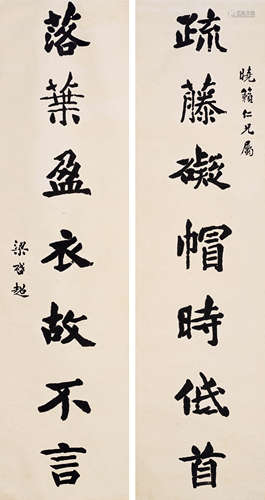 疏藤礙帽時低首
曉籟仁兄屬
落葉盈衣故不言
梁啓超